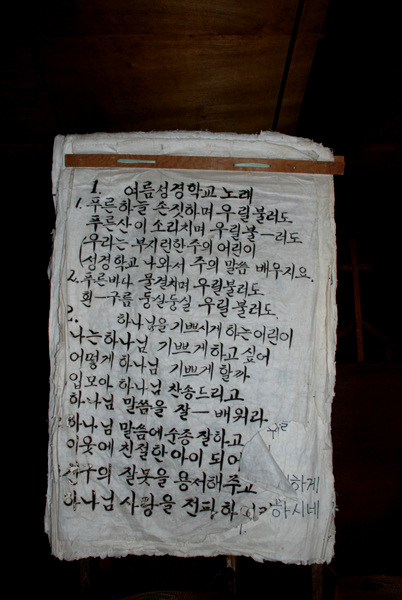 1. 여름성경학교 노래
1. 푸른하늘 손짓하며 우릴 불러도
푸른산이 소리치며 우릴 불ー러도
(우리는 부지런한 주의 어린이
(성경학교 나와서 주의 말씀 배우지요.
2. 푸른바다 물결치며 우릴불러도
흰ー구름 둥실둥실 우릴 불러도.
2. 하나님을 기쁘시게 하는 어린이
나는 하나님 기쁘게 하고 싶어
어떻게 하나님 기쁘게 할까
입모아 하나님 찬송드리고
하나님 말씀을 잘ー 배워라
하나님 말씀에 순종 잘하고
이웃에 친절한 아이 되어
친구의 잘못을 용서해주고 하게
하나님 사랑을 전파하 하시네